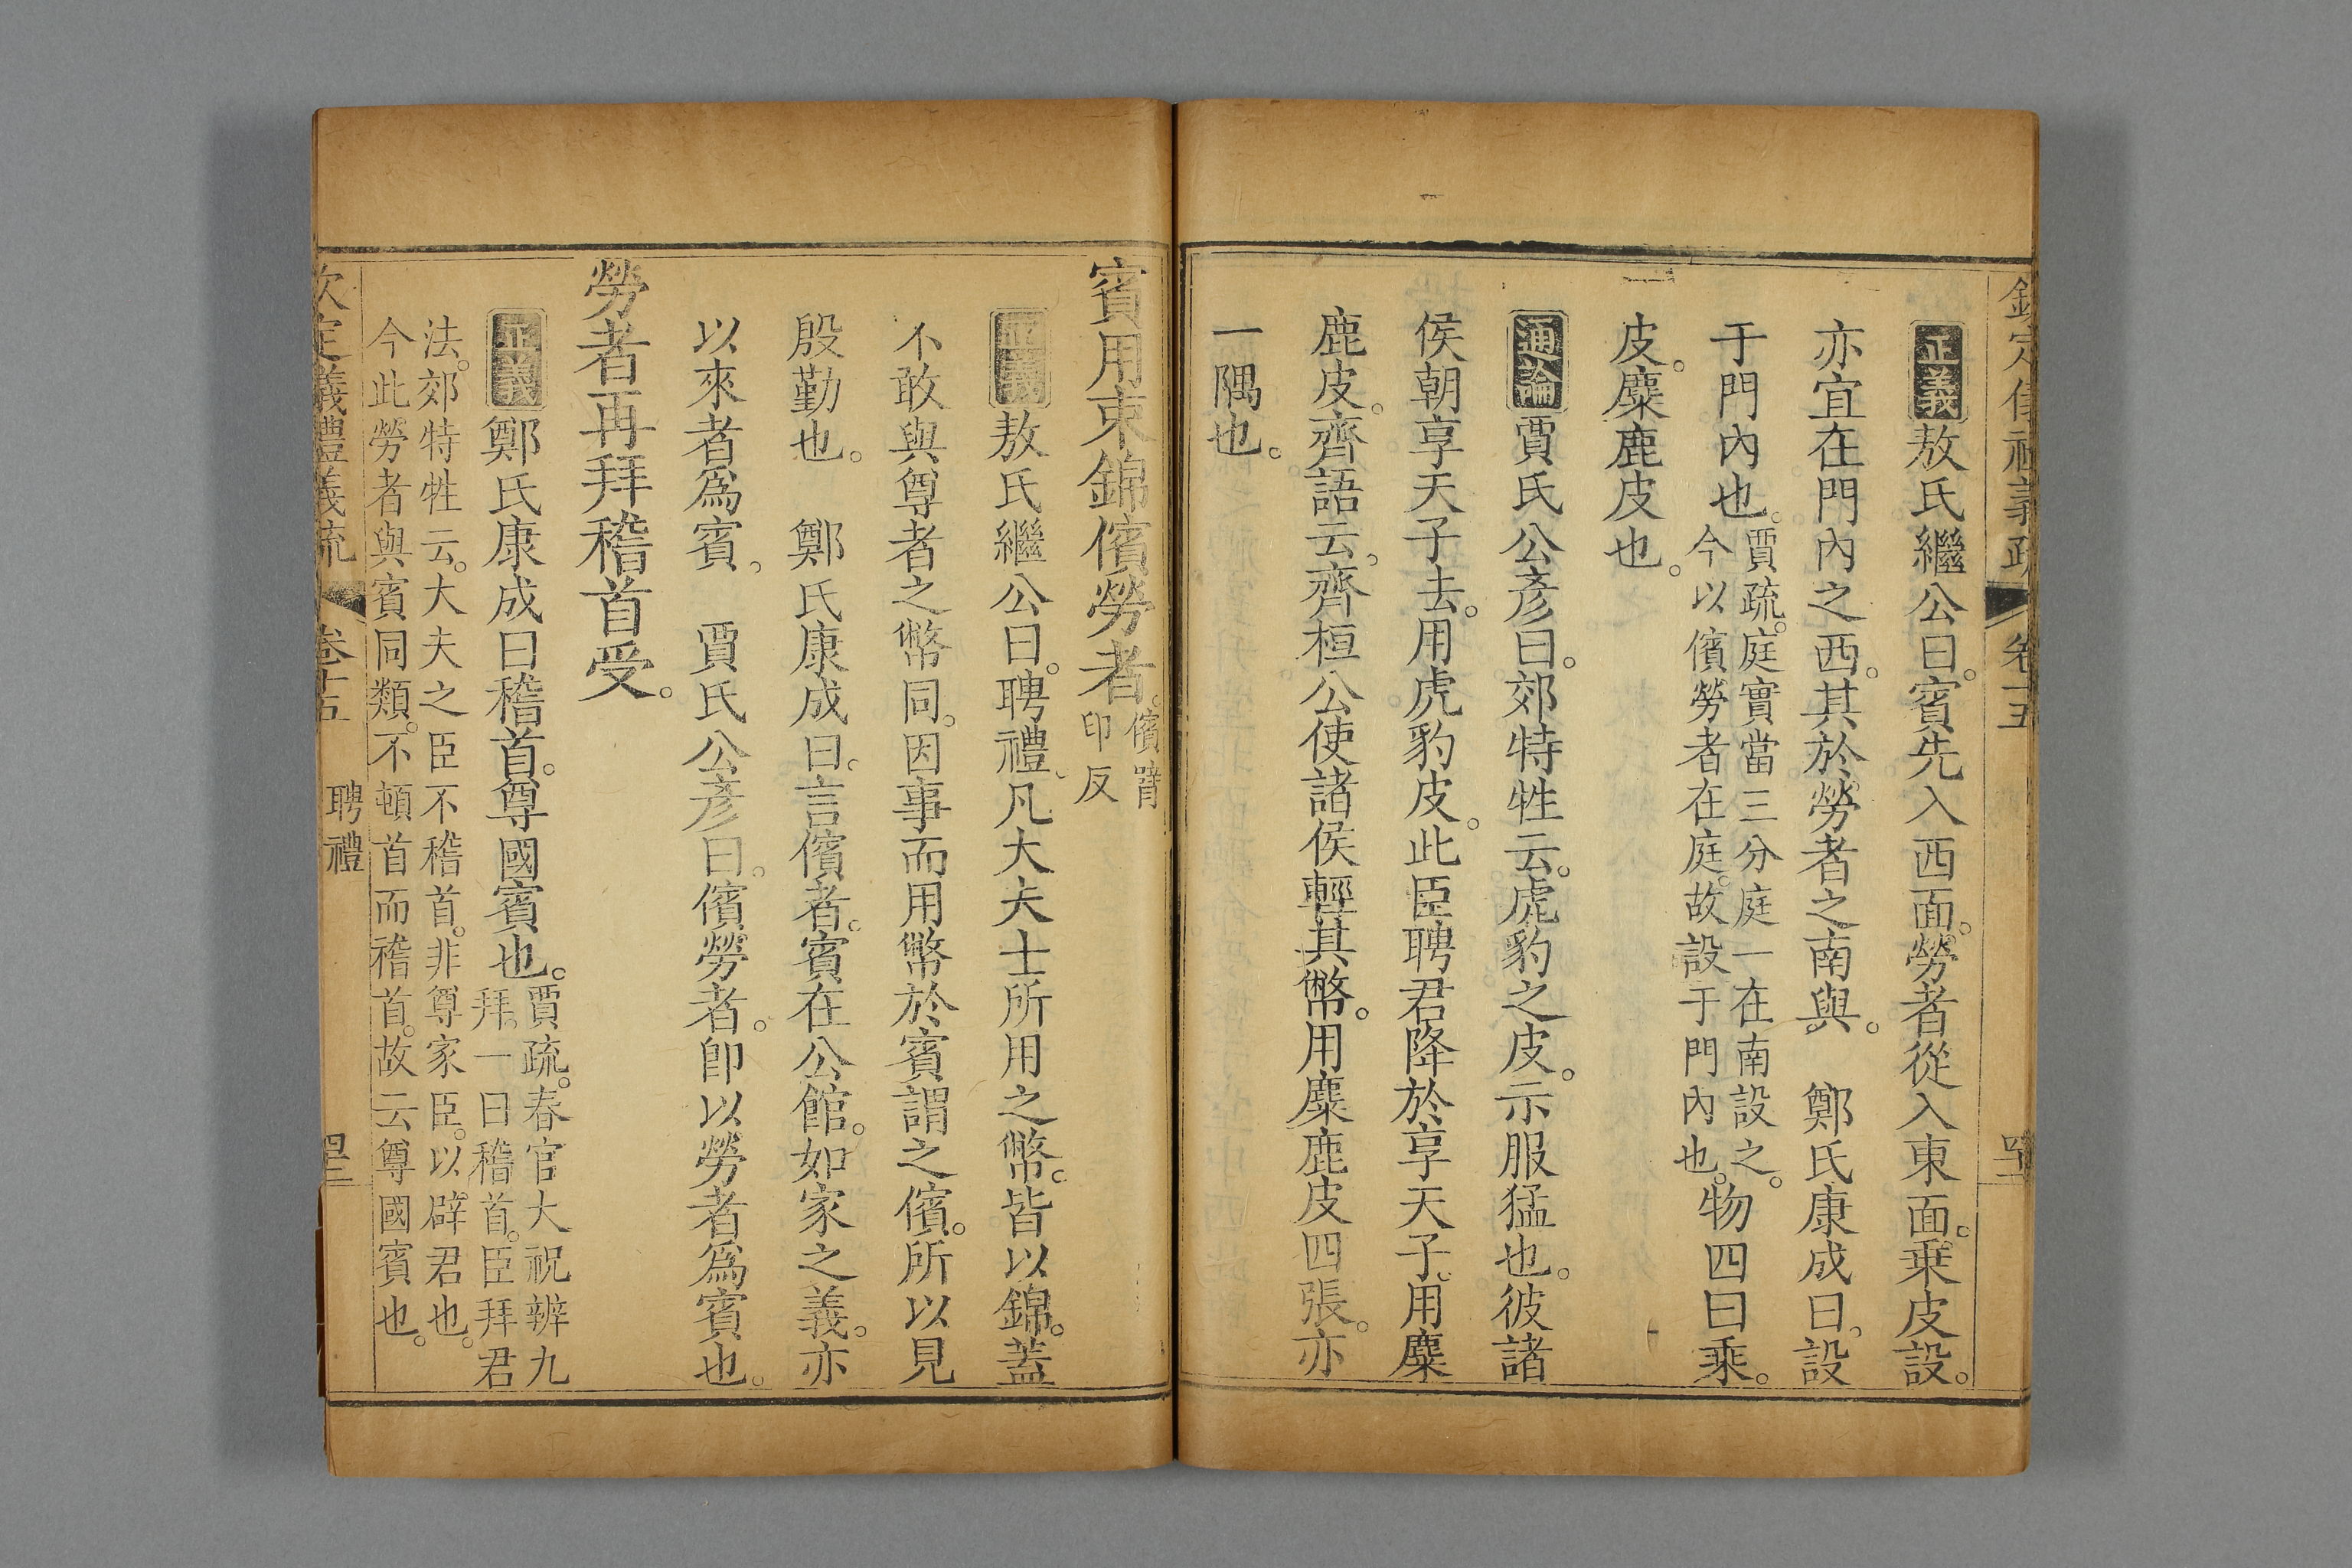 欽定儀禮義疏 卷十五
正義敖氏繼公曰。賓先入西面。勞者從入東面。乘皮設。
亦宜在門內之西。其於勞者之南與。 鄭氏康成曰。設
于門內也。賈疏。庭實當三分庭一在南設之。
今以儐勞者在庭。故設于門內也。物四曰乘。
皮。麋鹿皮也。
通論賈氏公彥曰。郊特牲云。虎豹之皮。示服猛也。彼諸
侯朝享天子去。用虎豹皮。此臣聘君降於享天子。用麋
鹿皮。齊語云。齊桓公使諸侯輕其幣。用麋鹿皮四張。亦
一隅也。
賓用束錦儐勞者。儐賓
印反
正義敖氏繼公曰。聘禮。凡大夫士所用之幣。皆以錦。蓋
不敢與尊者之幣同。因事而用幣於賓謂之儐。所以見
殷勤也。 鄭氏康成曰。言儐者。賓在公館。如家之義。亦
以來者爲賓。 賈氏公彥曰。儐勞者。卽以勞者爲賓也。
勞者再拜稽首受。
正義鄭氏康成曰稽首。尊國賓也。賈疏。春官大祝辨九
拜。一曰稽首。臣拜君
法。郊特牲云。大夫之臣不稽首。非尊家臣。以辟君也。
今此勞者與賓同類。不頓首而稽首。故云尊國賓也。
欽定義禮義疏 卷十五 聘禮